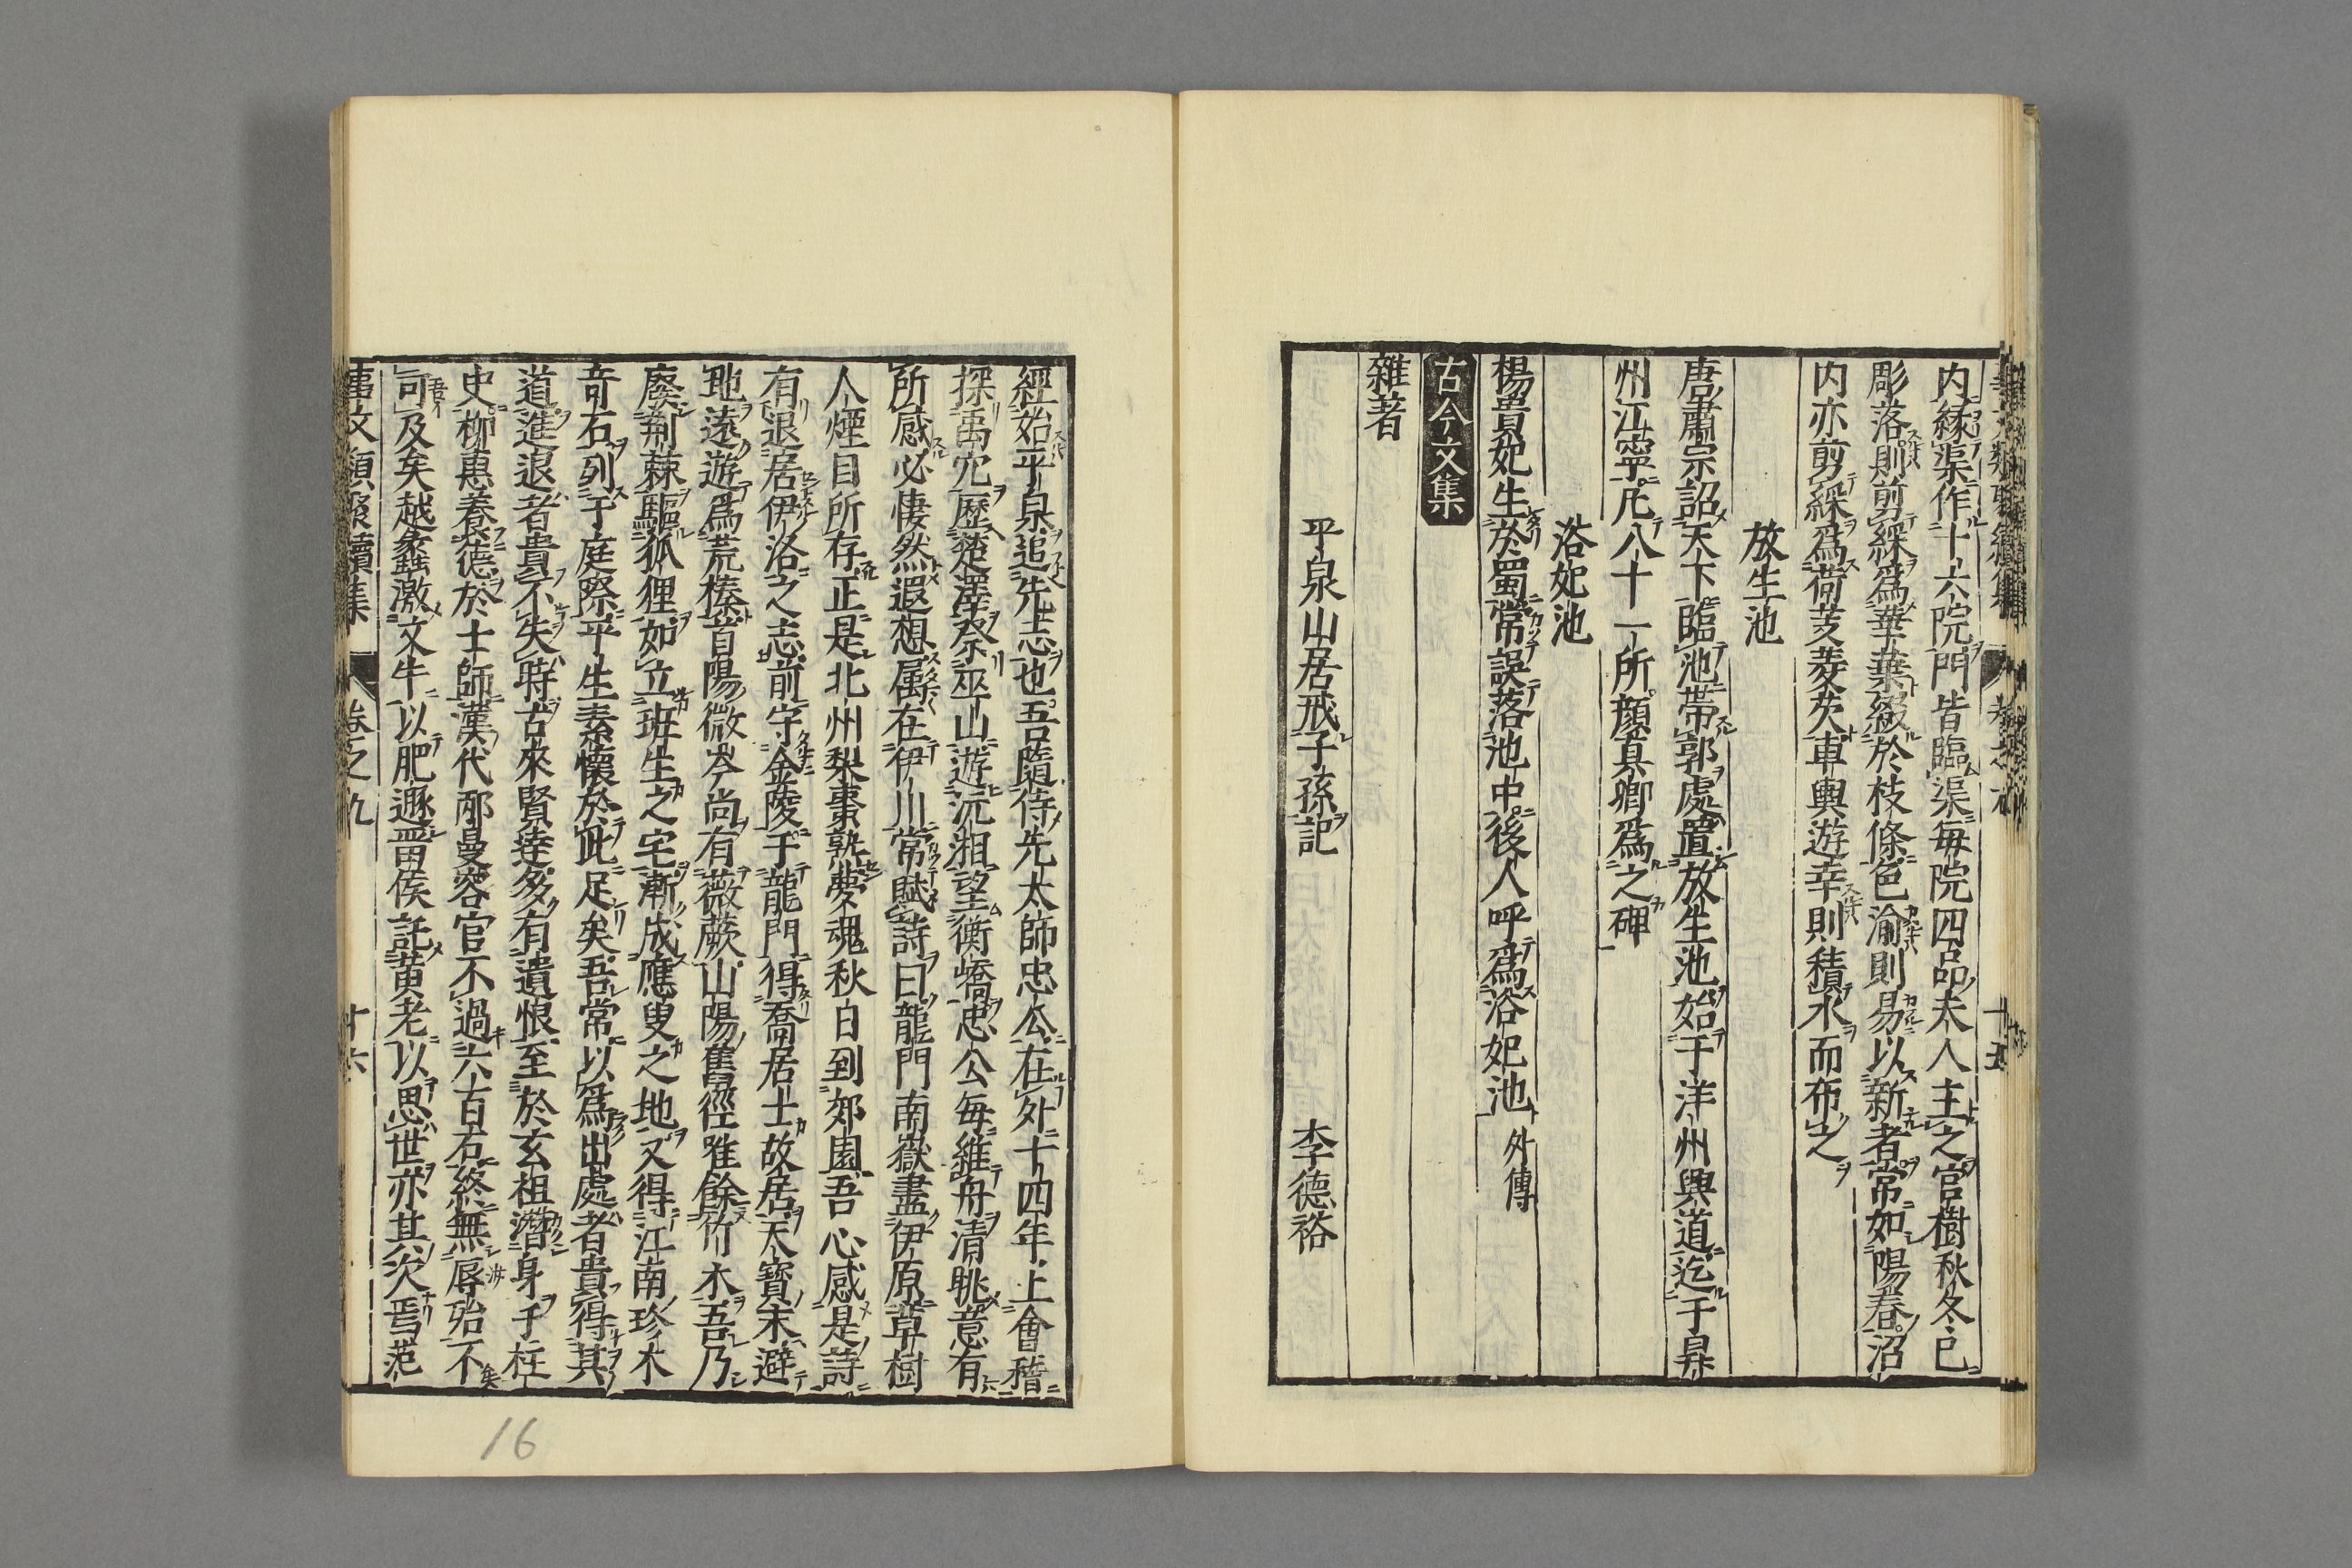 内緑渠作十六院門皆臨渠毎院四品夫人主之宮樹秋冬已
彫落則剪綵爲華葉綴於枝條色渝則易以新者常如陽春沼
内亦剪綵爲荷芰菱芡車輿遊幸則積水而布之
放生池
唐肅宗詔天下臨池帶郭處置放生池始于洋州興道迄于昇
州江寧凡八十一所顔真卿爲之碑
浴妃池
楊貴妃生於蜀常誤落池中後人呼爲浴妃池 外傳
古今文集
雜著
平泉山居戒子孫記 李德裕
經始平泉追先志也吾隨侍先太師忠公在外十四年上會稽
探禹穴歷楚澤祭巫山遊沅湘望衡嶠忠公每維舟清眺意有
所感必悽然遐想属在伊川常賦詩曰龍門南嶽盡伊原草樹
人煙目所存正是北州梨棗熟夢魂秋日到郊園吾心感是詩
有退居伊洛之志前守金陵于龍門得喬居士故居天寶末避
地遠遊爲荒榛首陽微岑尚有薇蕨山陽舊徑唯餘竹木吾乃
廢荆棘驅狐狸如立班生之宅漸成應叟之地又得江南珍木
奇石列于庭際平生素懷於此足矣吾常以爲出處者貴得其
道進退者貴不失時古來賢達多有遺恨至於玄祖潛身于柱
史柳惠養德於士師漢代邴曼容官不過六百石終無辱殆不
可及矣越蠡激文牛以肥遯畱侯託黄老以思世亦其次焉范
事文類聚續集 卷之九 十六
16